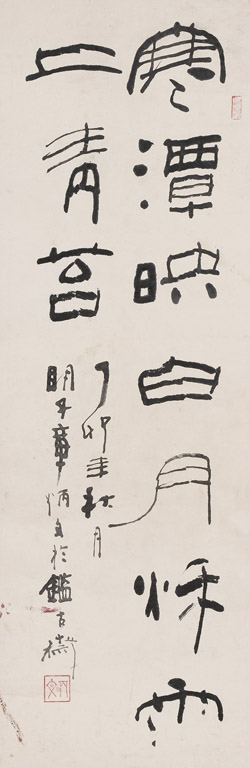 寒潭映白月秋雨
上青苔
丁卯年秋月
明子章炳文於鑑古齋